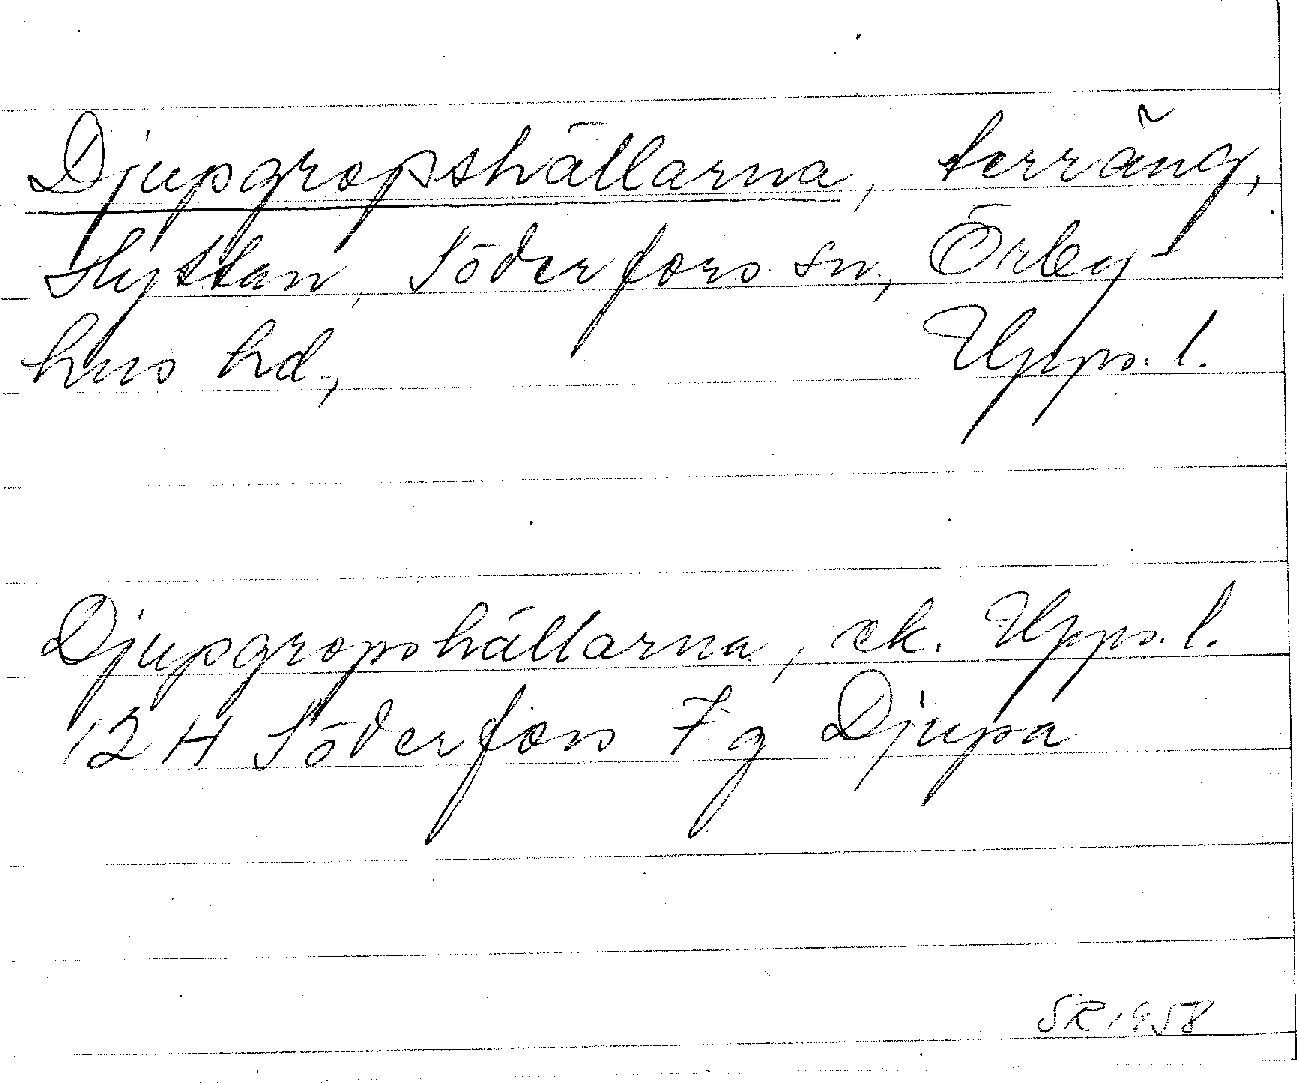 Djupgropshällarna, terräng,
Hyttan, Söderfors sn, Örby-
hus hd, Uppl.
Djupgropshällarna, ek. Uppl.
12 H Söderfors 7 g Djupa
SR 1958